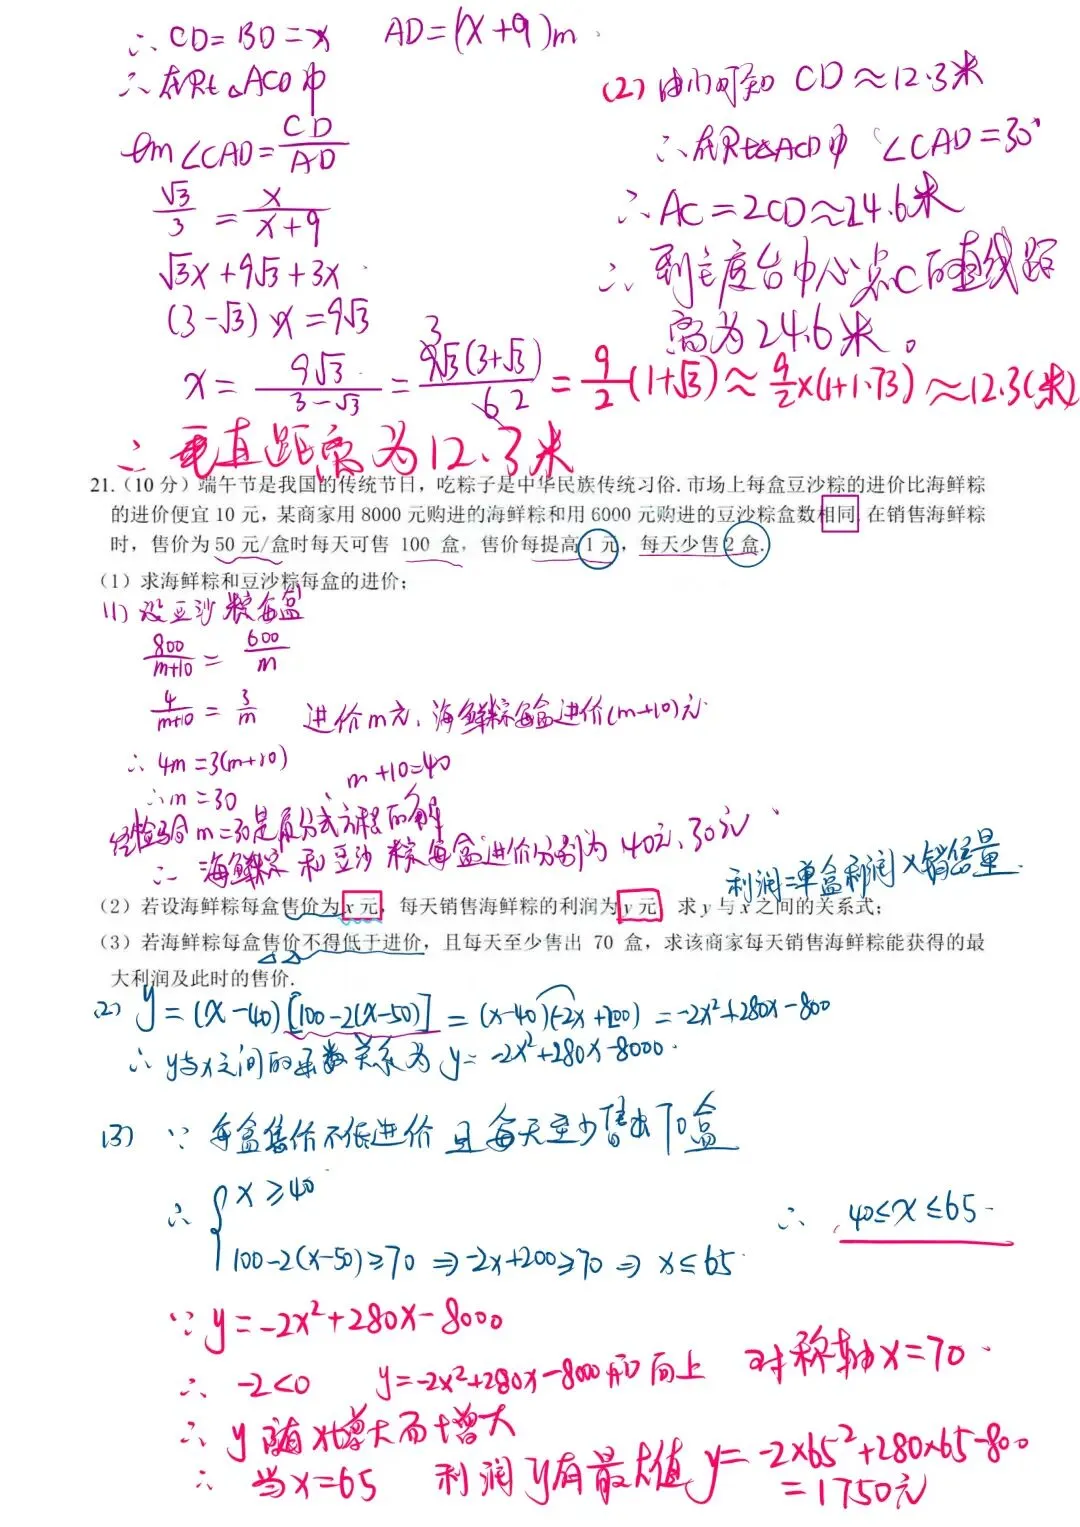 ∴ CD=BD=x AD=(x+9)m.
∴在Rt△ACD中
tan∠CAD=CD/AD
√3/3=x/(x+9)
√3x+9√3+3x
(3-√3)x=9√3
x=9√3/(3-√3)=9√3(3+√3)/6 3 2=9/2(1+√3)≈9/2×(1+1.73)≈12.3(米)
∴垂直距离为12.3米
(2)由(1)可知 CD≈12.3米
∴在Rt△ACD中 ∠CAD=30°
∴AC=2CD≈24.6米
∴到主度台中心点C的直线距
离为24.6米。
21.(10分)端午节是我国的传统节日，吃粽子是中华民族传统习俗.市场上每盒豆沙粽的进价比海鲜粽
的进价便宜10元，某商家用8000元购进的海鲜粽和用6000元购进的豆沙粽盒数相同.在销售海鲜粽
时，售价为50元/盒时每天可售 100 盒，售价每提高1元，每天少售2盒.
（1）求海鲜粽和豆沙粽每盒的进价；
(1)设豆沙粽每盒
800/(m+10)=600/m
4/(m+10)=3/m 进价m元，海鲜粽每盒进价(m+10)元
∴4m=3(m+10)
∴m=30 ∴m+10=40
经检验m=30是原分式方程的解
∴海鲜粽和豆沙粽每盒进价分别为40元、30元.
利润=单盒利润×销售量
（2）若设海鲜粽每盒售价为x元，每天销售海鲜粽的利润为y元，求y与x之间的关系式；
（3）若海鲜粽每盒售价不得低于进价，且每天至少售出 70 盒，求该商家每天销售海鲜粽能获得的最
大利润及此时的售价.
(2) y=(x-40)[100-2(x-50)]=(x-40)(-2x+200)=-2x²+280x-800
∴y与x之间的函数关系为y=-2x²+280x-8000.
(3) ∵每盒售价不低进价且每天至少售出70盒
∴{x≥40
100-2(x-50)≥70⇒-2x+200≥70⇒x≤65.
∴40≤x≤65.
∵y=-2x²+280x-8000
∴-2<0 y=-2x²+280x-8000开口向上 对称轴x=70.
∴y随x增大而增大
∴当x=65 利润y有最大值y=-2×65²+280×65-800
=1750元